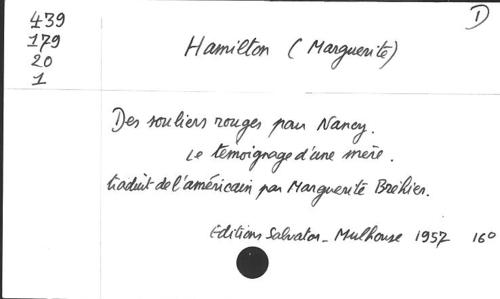 439
179
20
1
D
Hamilton (Marguerite)
Des souliers rouges pour Nancy.
Le témoignage d'une mère.
traduit de l'américain par Marguerite Bréhier.
Editions Salvator - Mulhouse 1957 16°